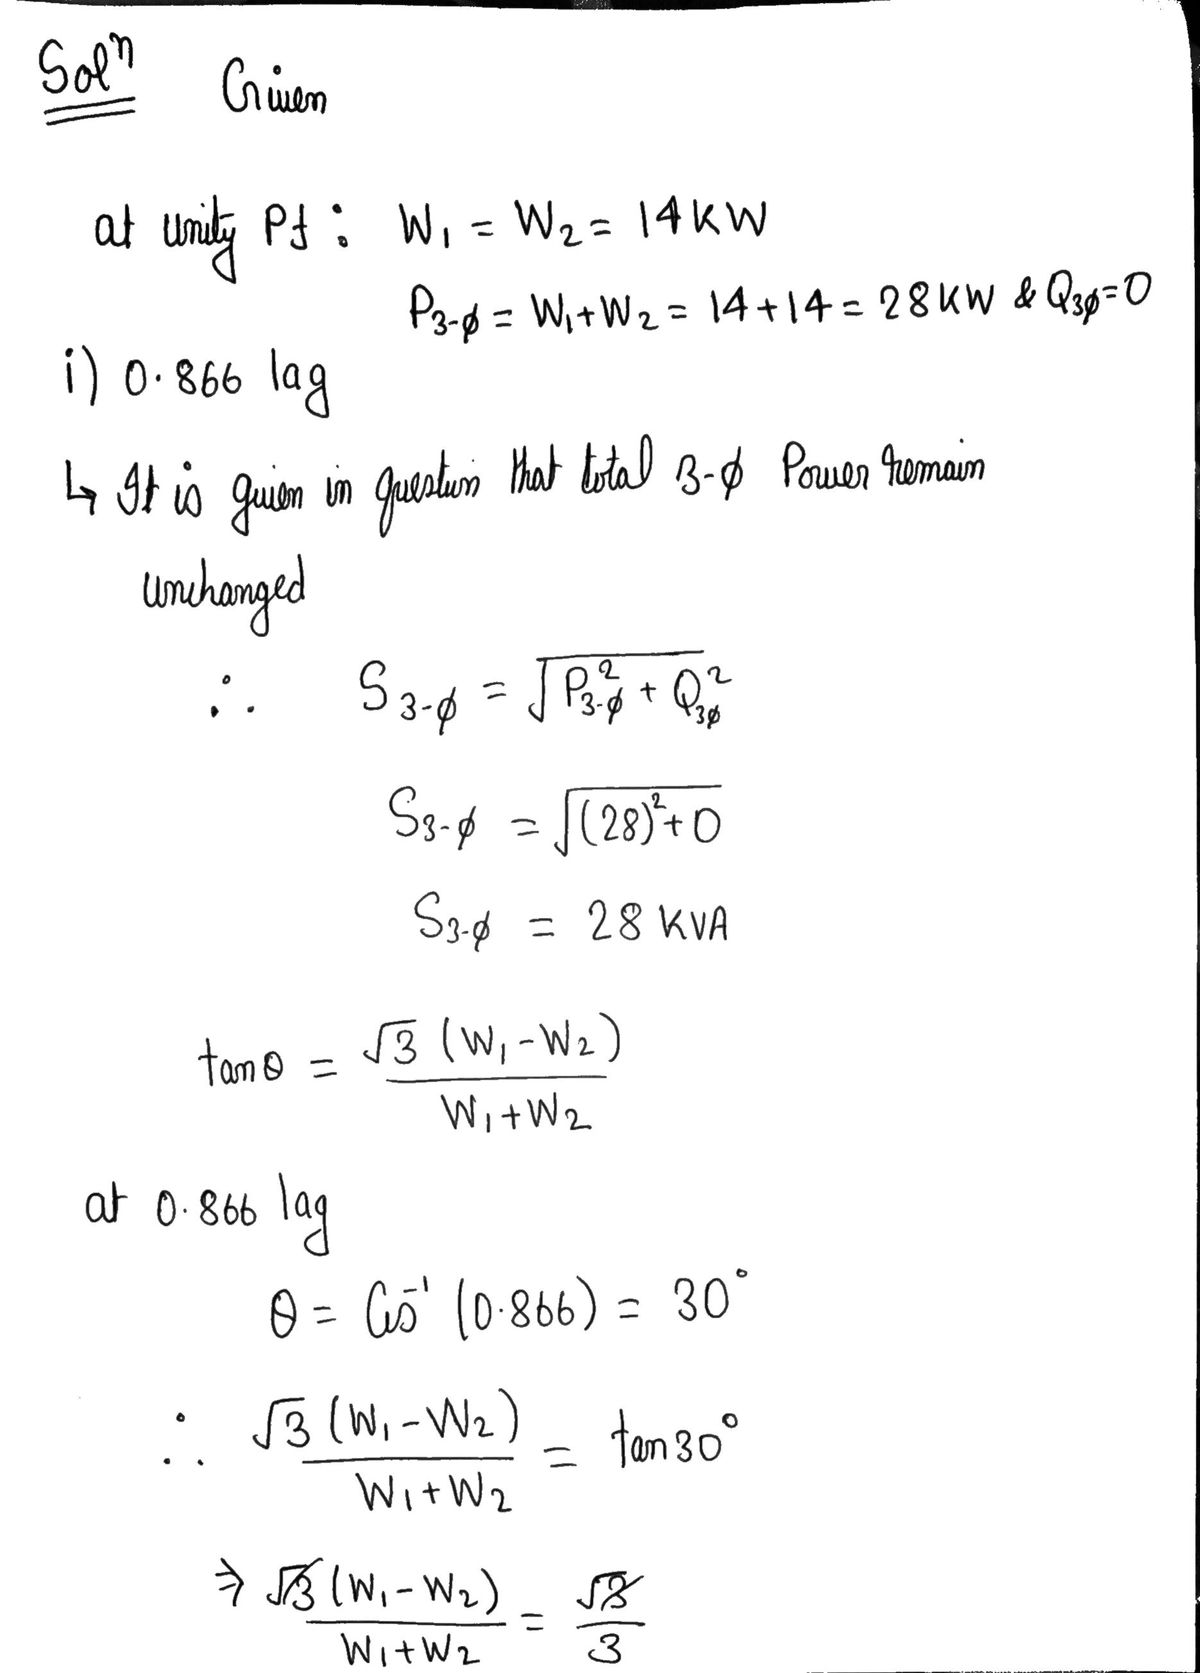 Solⁿ Given
at unity Pf : W₁ = W₂ = 14KW
P₃₋ϕ = W₁+W₂ = 14+14 = 28KW & Q₃ϕ=0
i) 0.866 lag
↳ It is given in question that total 3-ϕ Power remain
unchanged
∴ S₃₋ϕ = √(P₃₋ϕ² + Q₃ϕ²)
S₃₋ϕ = √((28)²+0)
S₃₋ϕ = 28 KVA
tanθ = √3 (W₁-W₂) / W₁+W₂
at 0.866 lag
θ = Cos⁻¹ (0.866) = 30°
∴ √3 (W₁-W₂) / W₁+W₂ = tan30°
⇒ √3 (W₁-W₂) / W₁+W₂ = √3 / 3